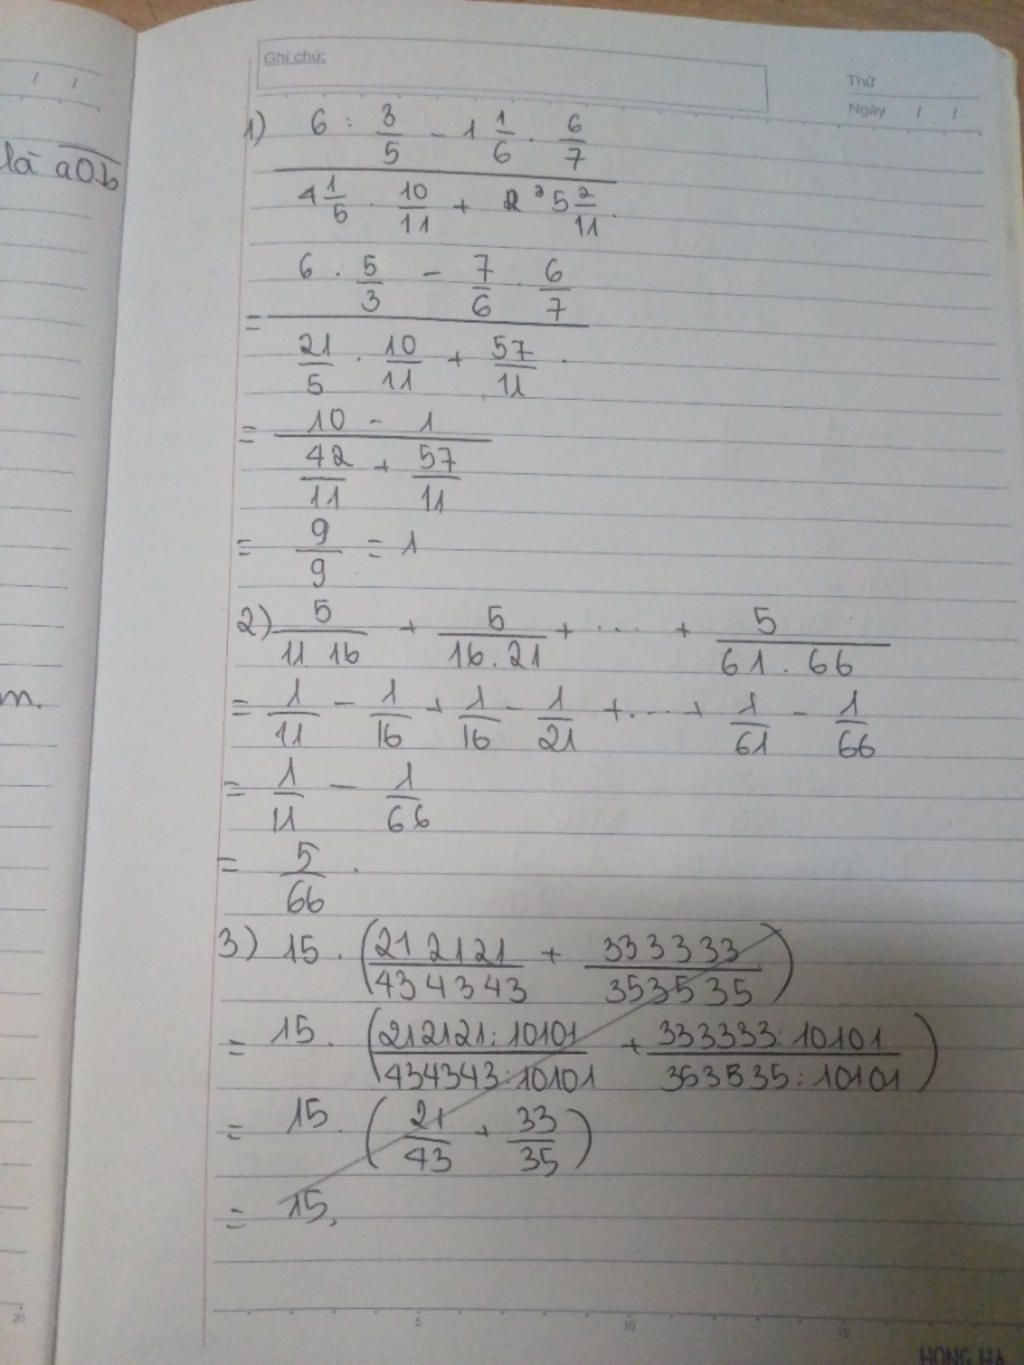 là aOb
m.
Ghi chú:
Thứ
Ngày / /
1) 6 : 3/5 - 1 1/6 . 6/7
4 1/5 . 10/11 + 5 2/11
= 6 . 5/3 - 7/6 . 6/7
21/5 . 10/11 + 57/11
= 10 - 1
42/11 + 57/11
= 9/9 = 1
2) 5/11 16 + 5/16.21 + .... + 5/61.66
= 1/11 - 1/16 + 1/16 - 1/21 + .... + 1/61 - 1/66
= 1/11 - 1/66
= 5/66 .
3) 15 . (212121/434343 + 333333/353535)
= 15 . (212121:10101/434343:10101 + 333333:10101/353535:10101)
= 15 . (21/43 + 33/35)
= 15.
20 5 10 15
HONG HA